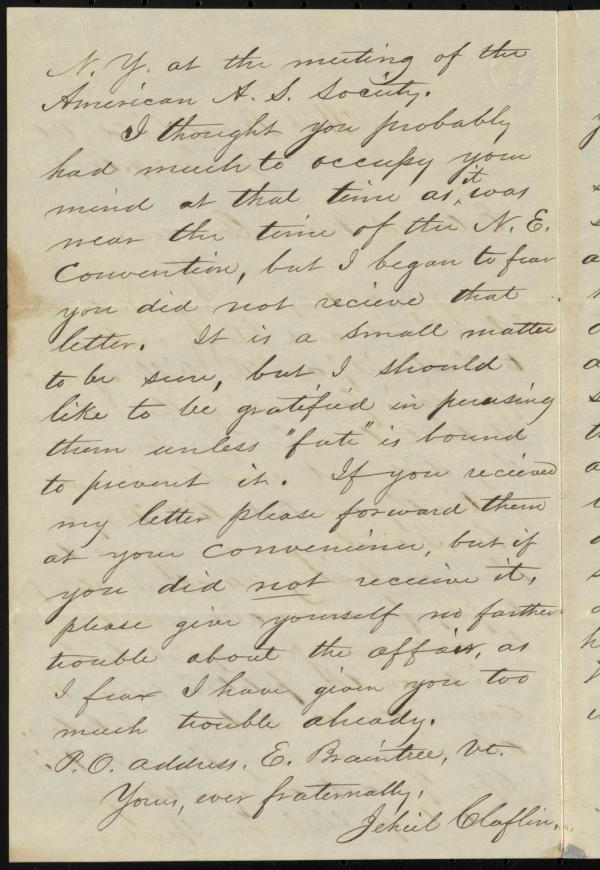 N. Y. at the meeting of the
American A. S. Society.
I thought you probably
had much to occupy your
mind at that time as it was
near the time of the N. E.
Convention, but I began to fear
you did not recieve that
letter. It is a small matter
to be sure, but I should
like to be gratified in perusing
them unless "fate" is bound
to prevent it. If you recieved
my letter please forward them
at your convenience, but if
you did not receive it,
please give yourself no farther
trouble about the affair, as
I fear I have given you too
much trouble already.
P.O. address. E. Braintree, Vt.
Yours, ever fraternally,
Jehiel Claflin.